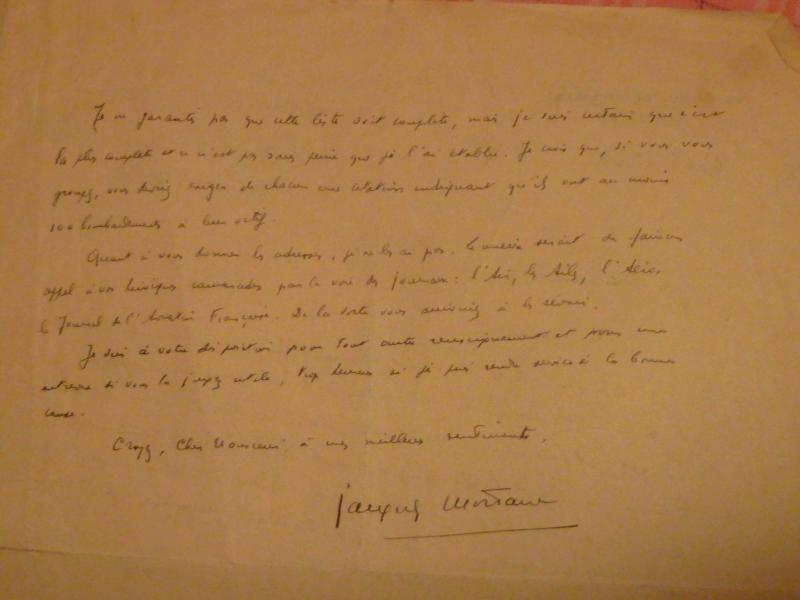 Je ne garantis pas que cette liste soit complète, mais je suis certain que c'est
la plus complète et ce n'est pas sans peine que je l'ai établie. Je crois que, si vous vous
groupez, vous devriez exiger de chacun une citation indiquant qu'ils ont au moins
100 bombardements à leur actif.
Quant à vous donner les adresses, je ne les ai pas. Le mieux serait de faire un
appel à vos héroïques camarades par la voie des journaux : l'Air, les Ailes, l'Aéro,
le Journal de l'Aviation Française. De la sorte vous arriverez à les réunir.
Je suis à votre disposition pour tout autre renseignement et pour une
entrevue si vous la jugez utile, trop heureux si je puis rendre service à la bonne
cause.
Croyez, cher Monsieur à mes meilleurs sentiments.
Jacques Mortane